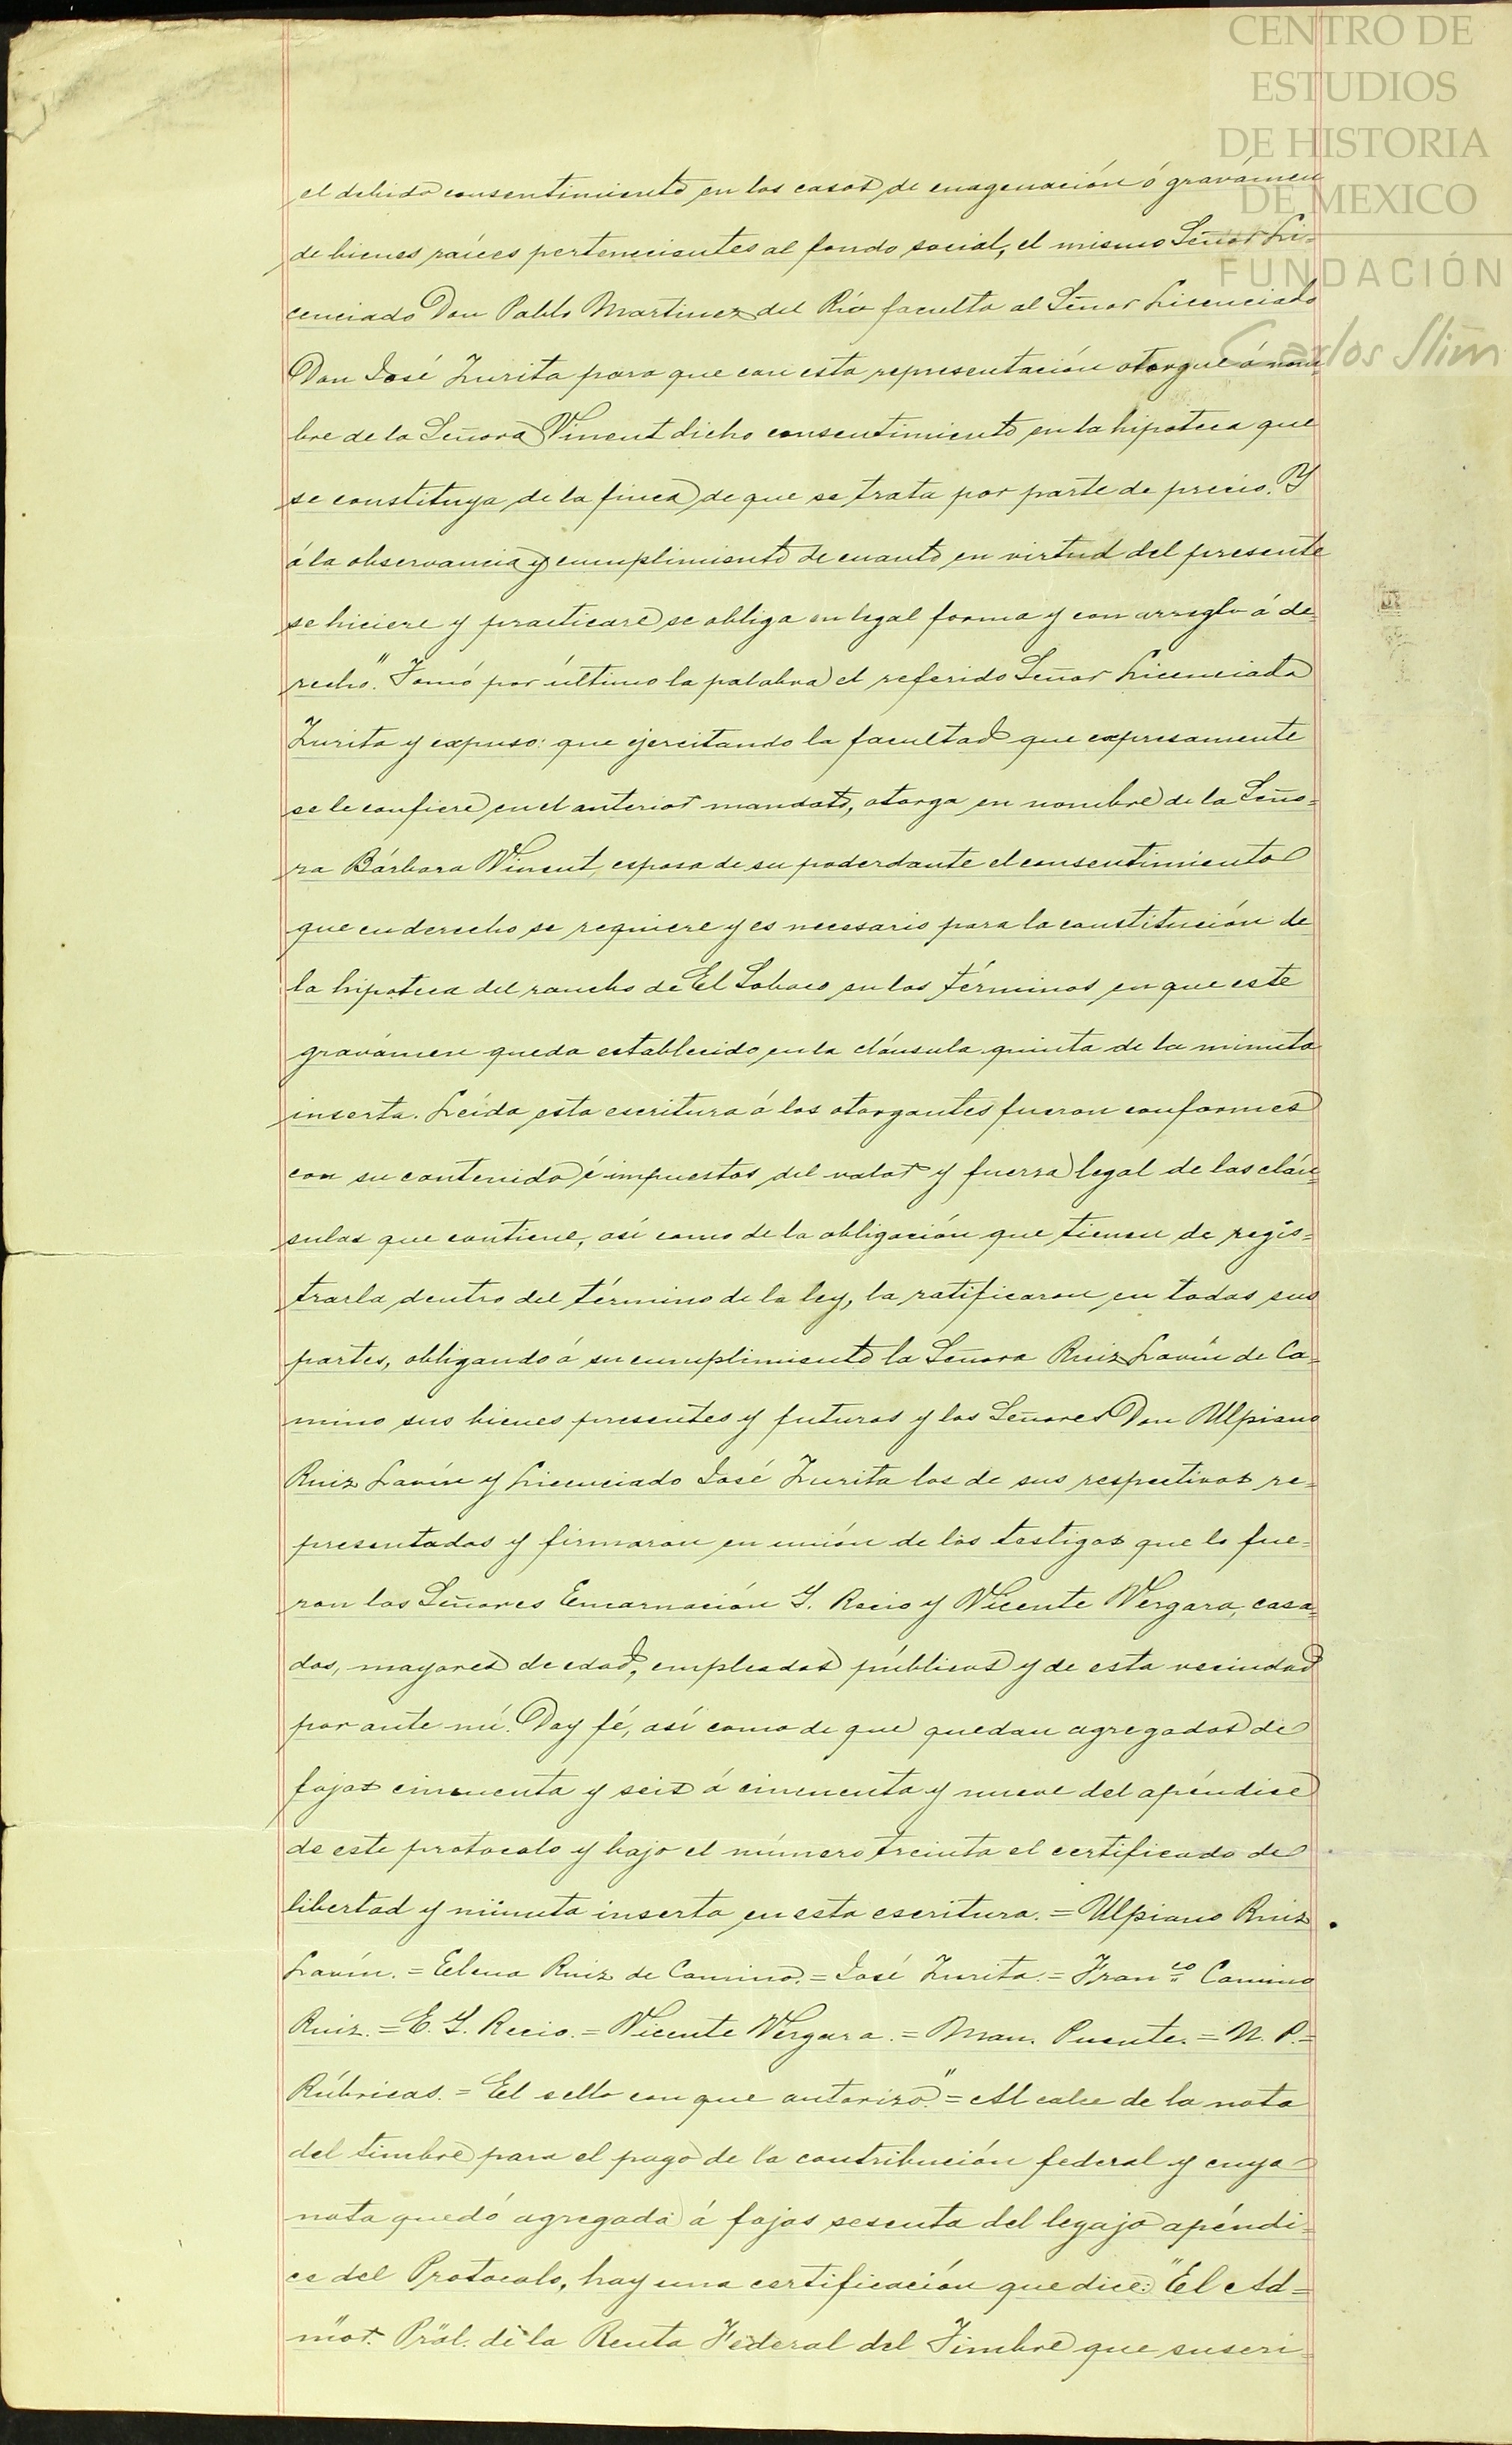 CENTRO DE
ESTUDIOS
DE HISTORIA
DE MEXICO
FUNDACIÓN
Carlos Slim
el debido consentimiento en los casos de enagenación ó gravámen
de bienes raíces pertenecientes al fondo social, el mismo Señor Li-
cenciado Don Pablo Martinez del Río faculta al Señor Licenciado
Don José Zurita para que con esta representación otorgue á nom-
bre de la Señora Vinent dicho consentimiento en la hipoteca que
se constituya de la finca de que se trata por parte de precio. Y
á la observancia y cumplimiento de cuanto en virtud del presente
se hiciere y practicare se obliga en legal forma y con arreglo á de-
recho." Tomó por último la palabra el referido Señor Licenciado
Zurita y expuso: que ejercitando la facultad que expresamente
se le confiere en el anterior mandato, otorga en nombre de la Seño-
ra Bárbara Vinent, esposa de su poderdante el consentimiento
que en derecho se requiere y es necesario para la constitución de
la hipoteca del rancho de El Sobaco en los términos en que este
gravámen queda establecido en la cláusula quinta de la minuta
inserta. Leída esta escritura á los otorgantes fueron conformes
con su contenido é impuestos del valor y fuerza legal de las cláu-
sulas que contiene, así como de la obligación que tienen de regis-
trarla dentro del término de la ley, la ratificaron en todas sus
partes, obligando á su cumplimiento la Señora Ruiz Lavín de Ca-
mino sus bienes presentes y futuros y los Señores Don Ulpiano
Ruiz Lavín y Licenciado José Zurita los de sus respectivos re-
presentados y firmaron en unión de los testigos que lo fue-
ron los Señores Encarnación G. Recio y Vicente Vergara, casa-
dos, mayores de edad, empleados públicos y de esta vecindad
por ante mí. Doy fé, así como de que quedan agregados de
fojas cincuenta y seis á cincuenta y nueve del apéndice
de este protocolo y bajo el número treinta el certificado de
libertad y minuta inserta en esta escritura. = Ulpiano Ruiz
Lavín. = Elena Ruiz de Camino. = José Zurita. = Fran.co Camino
Ruiz. = E. G. Recio. = Vicente Vergara. = Man. Puente. = N. P. =
Rúbricas. = El sello con que autorizo." = Al calce de la nota
del timbre para el pago de la contribución federal y cuya
nota quedó agregada á fojas sesenta del legajo apéndi-
ce del Protocolo, hay una certificación que dice: "El Ad-
mor. Pral. de la Renta Federal del Timbre que suscri-